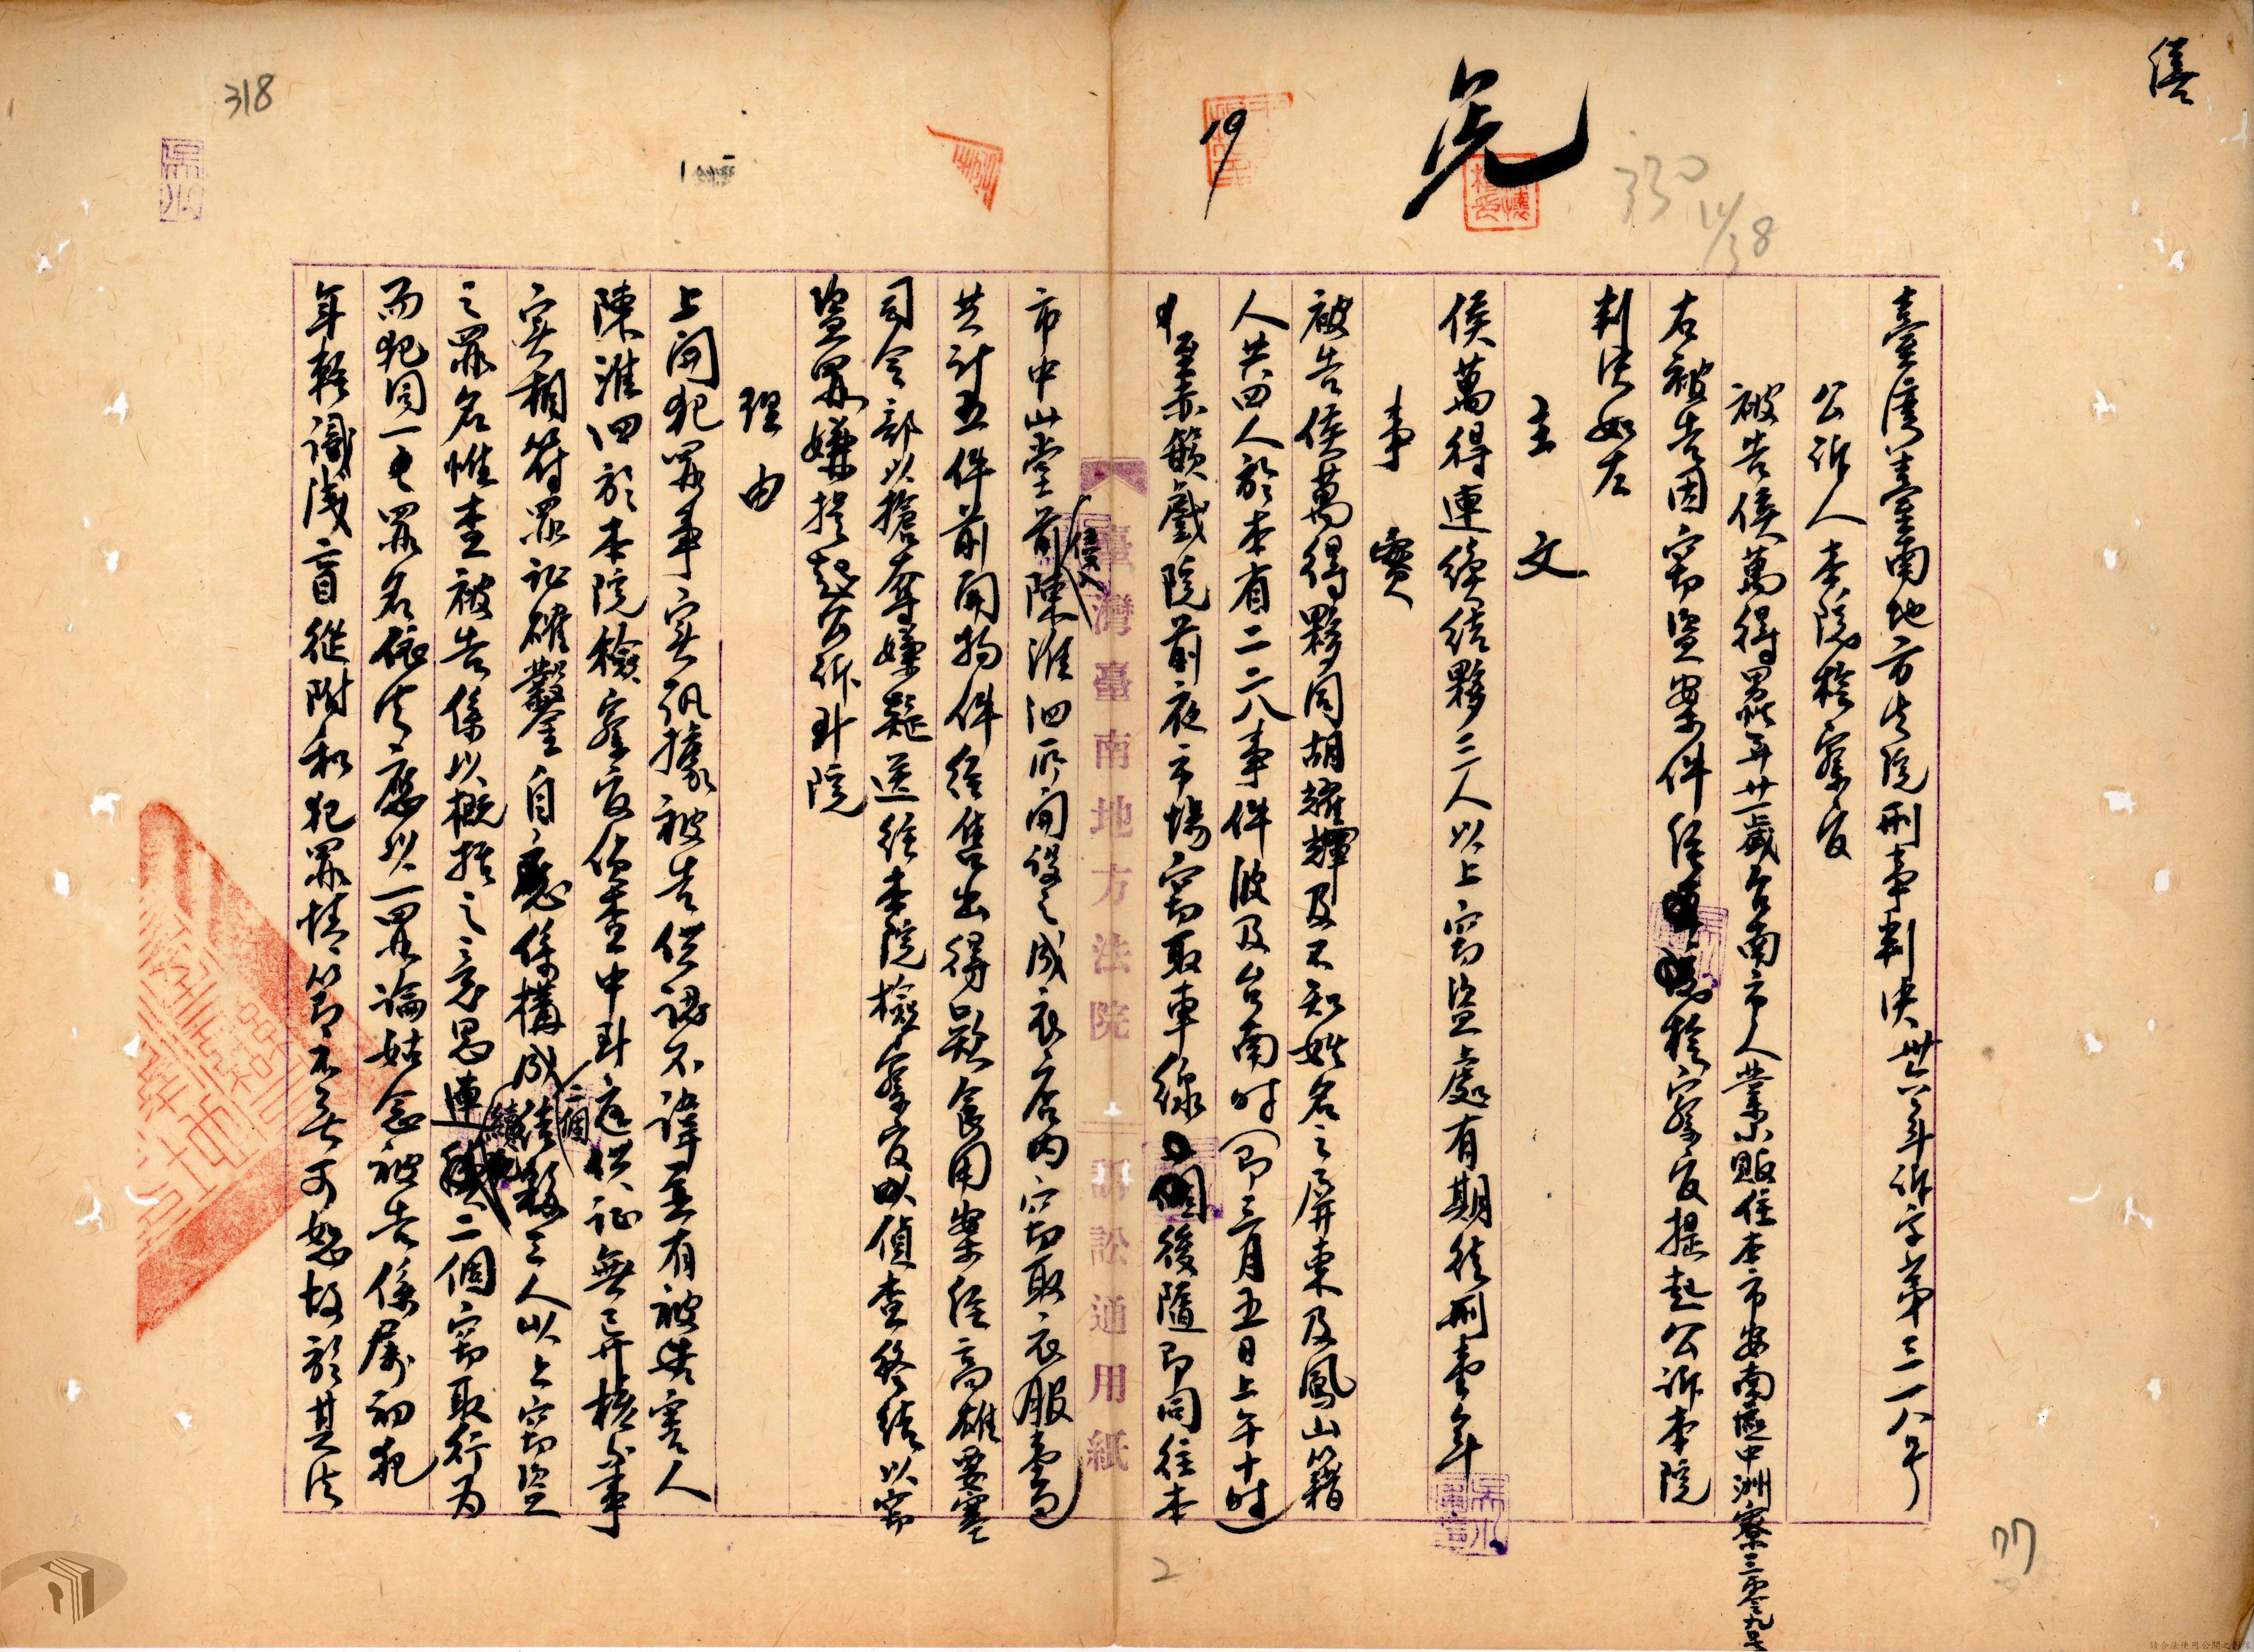 僖
先
19
318
330
11/38
臺灣臺南地方法院刑事判決 卅六年訴字第三一八号
公訴人本院檢察官
被告侯萬得男年廿一歲台南市人業小販住本市安南區中洲寮三零九号
右被告因窃盜案件経檢察官提起公訴本院
判決如左
主文
侯萬得連續結夥三人以上窃盜處有期徒刑壹年
事實
被告侯萬得夥同胡耀輝及不知姓名之屏東及鳳山籍
人共四人於本省二二八事件波及台南時(即三月五日上午十時)
至赤嵌戲院前夜市場窃取車線個後隨即同往本
市中山堂前陳淮泗所開設之成衣店內窃取衣服
共計五件前開物件経售出得款食用案経高雄要塞
司令部以搶奪嫌疑送経本院檢察官偵查終結以窃
盜罪嫌提起公訴到院
理由
上開犯罪事实訊據被告供認不諱並有被害人
陳淮泗於本院檢察官偵查中到庭供証無異核與事
实相符罪証確鑿自應係構成二個結夥三人以上窃盜
之罪名惟查被告係以概括之意思連續二個窃取行为
而犯同一之罪名依法應以一罪論姑念被告係屬初犯
年輕識淺盲從附和犯罪情節不無可恕故於其法
臺灣臺南地方法院 訴訟通用紙
2
77
請合法使用公開之影像